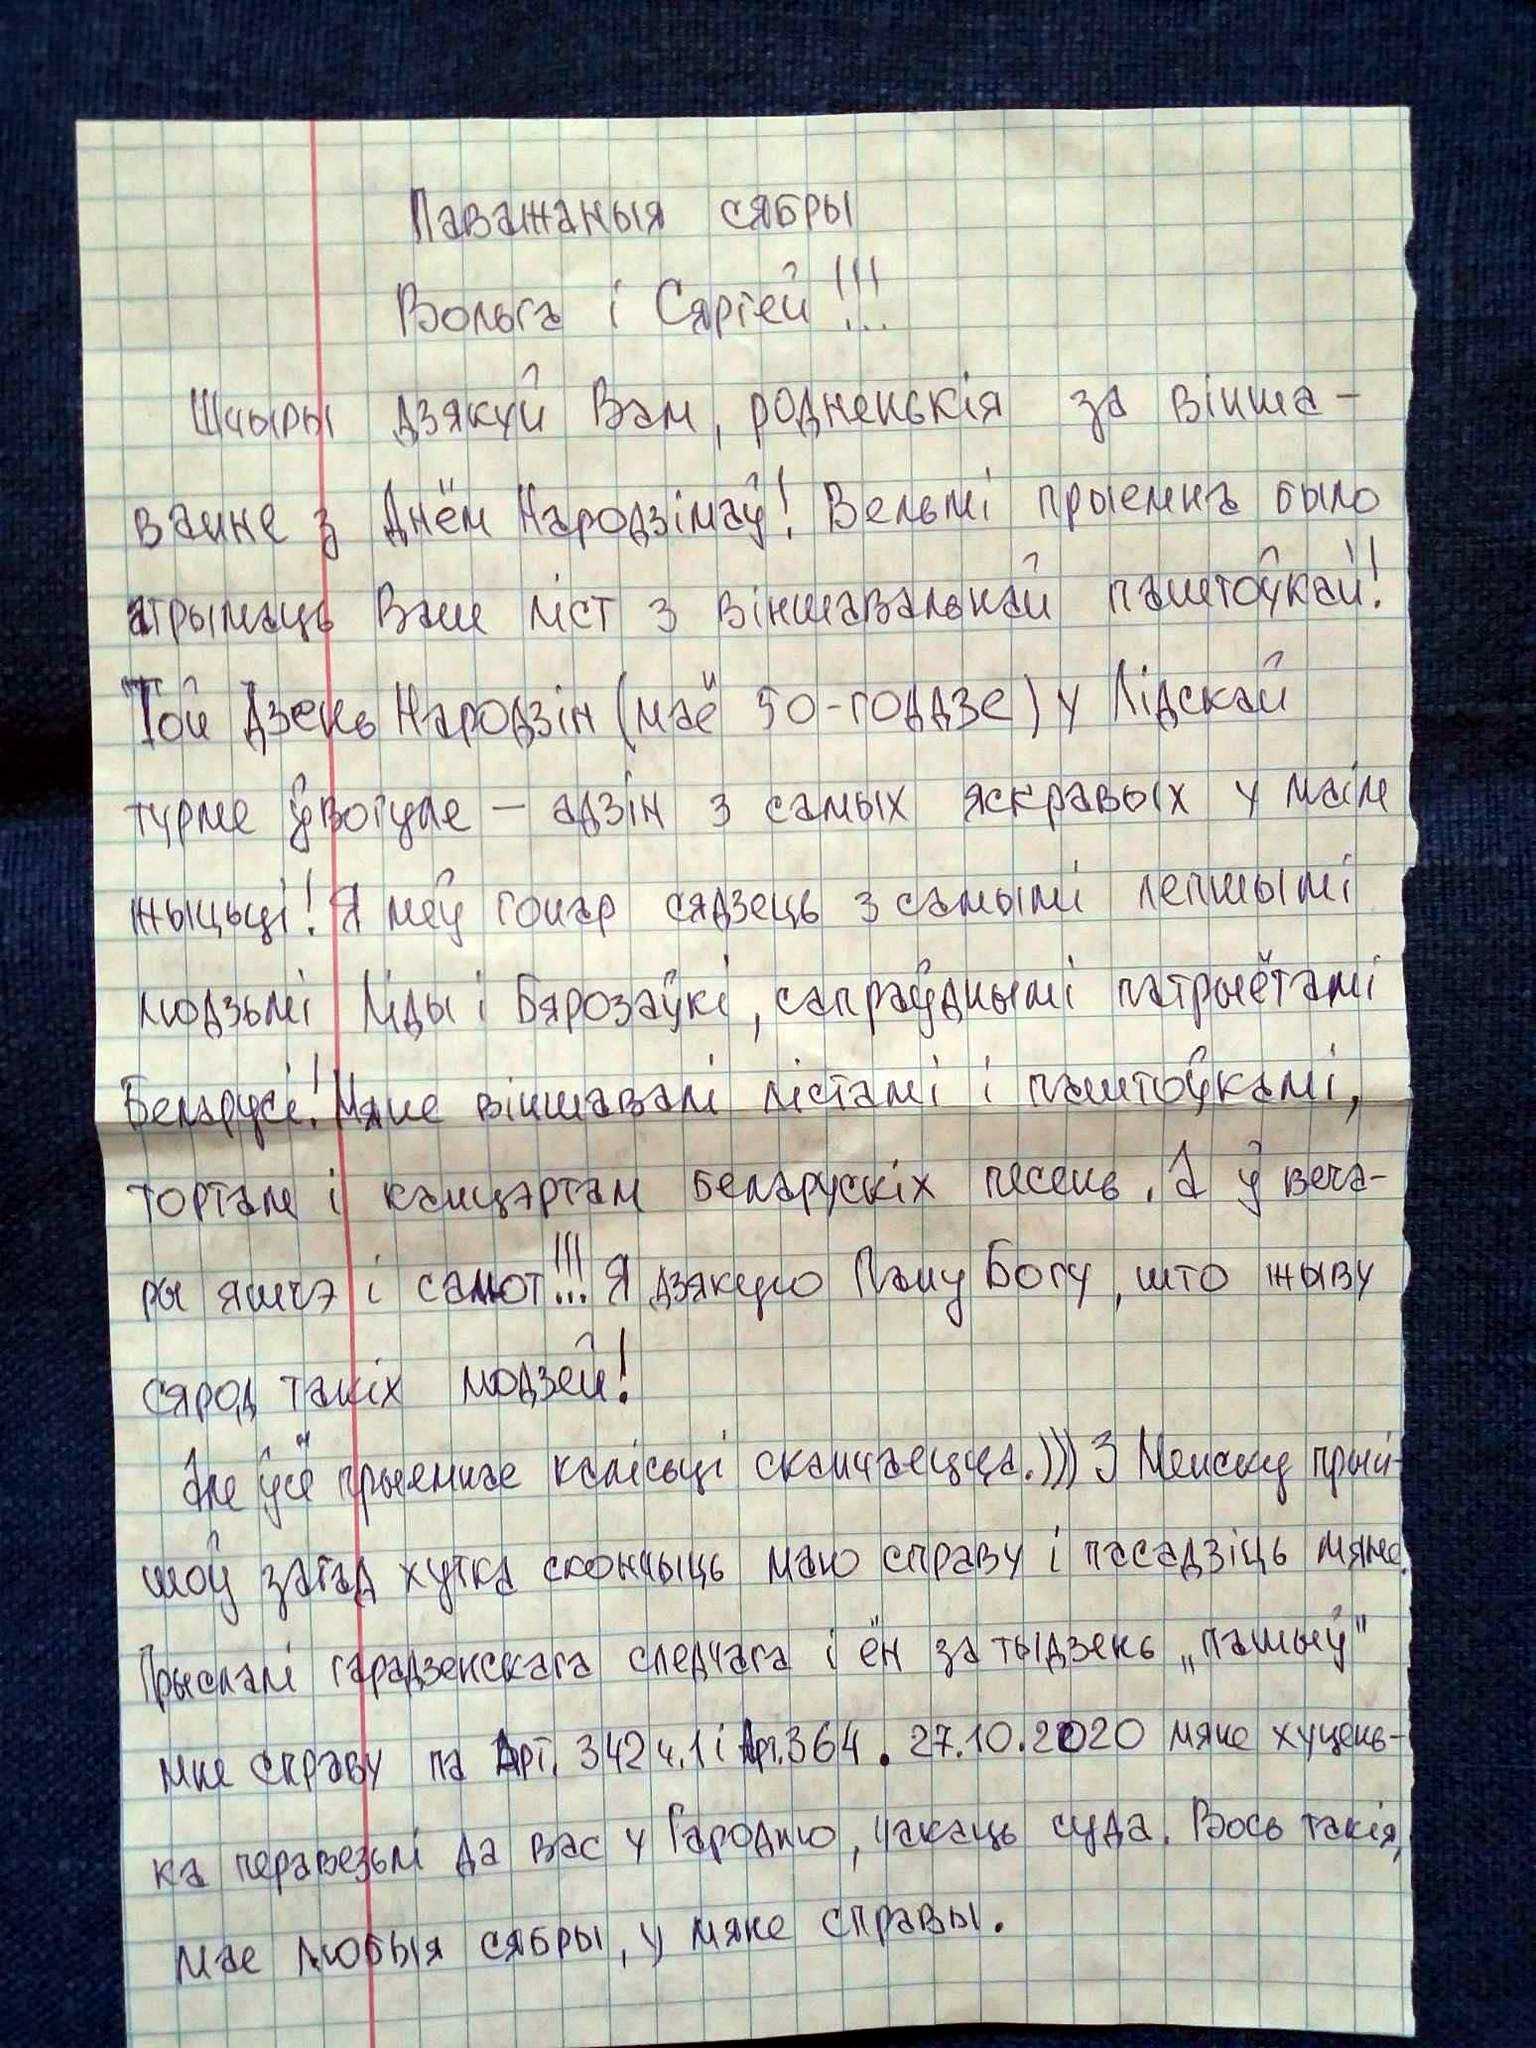 Паважаныя сябры
Вольга і Сяргей!!!
Шчыры дзякуй Вам, родненькія за вінша-
ванне з Днём Народзінаў! Вельмі прыемна было
атрымаць Ваш ліст з віншавальнай паштоўкай!
Той Дзень Народзін (маё 50-годдзе) у Лідскай
турме ўвогуле – адзін з самых яскравых у маім
жыцьці! Я меў гонар сядзець з самымі лепшымі
людзьмі Ліды і Бярозаўкі, сапраўднымі патрыётамі
Беларусі! Мяне віншавалі лістамі і паштоўкамі,
тортам і канцэртам беларускіх песень. А ў веча-
ры яшчэ і салют!!! Я дзякую Пану Богу, што жыву
сярод такіх людзей!
Але ўсё прыемнае калісьці сканчаецца.))) З Менску прый-
шоў загад хутка скончыць маю справу і пасадзіць мяне.
Прыслалі гарадзенскага следчага і ён за тыдзень „пашыў"
мне справу па Арт. 342 ч.1 і Арт.364. 27.10.2020 мяне хуцень-
ка перавезьлі да вас у Гародню, чакаць суда. Вось такія,
мае любыя сябры, у мяне справы.